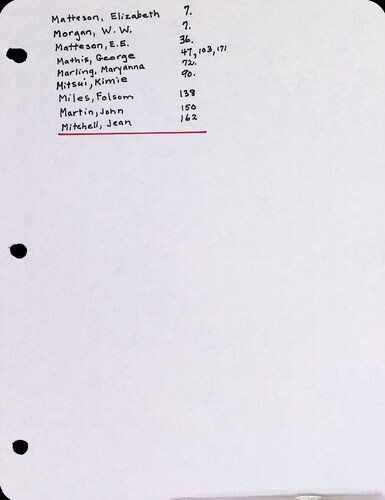 Matteson, Elizabeth 7.
Morgan, W. W. 7.
Matteson, E.E. 36.
Mathis, George 47, 103, 171
Marling, Maryanna 72.
Mitsui, Kimie 90.
Miles, Folsom 138
Martin, John 150
Mitchell, Jean 162